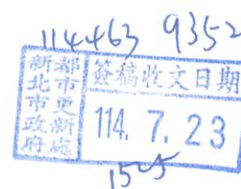 114463 9352
新北市政府
都市更新處
簽稿收文日期
114. 7. 23